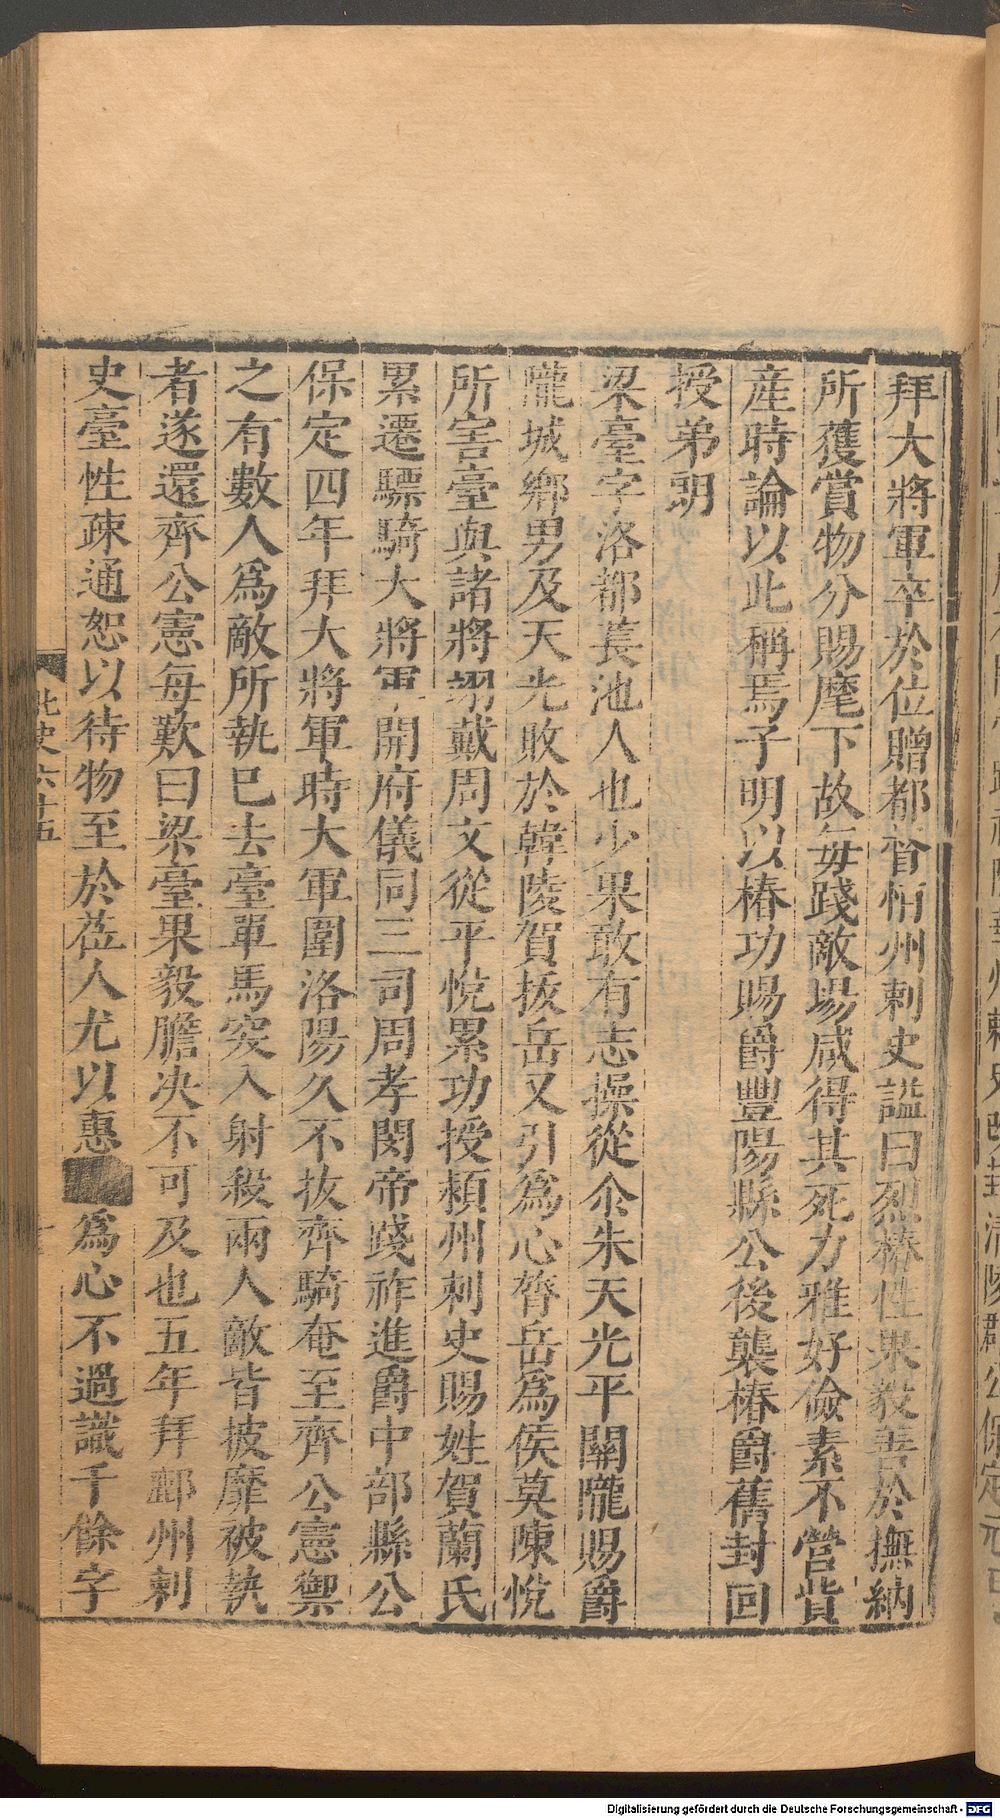 拜大將軍卒於位贈都督恒州刺史諡曰烈椿性果毅善於撫納
所獲賞物分賜麾下故每踐敵場咸得其死力雅好儉素不營貲
產時論以此稱焉子明以椿功賜爵豐陽縣公後襲椿爵舊封回
授弟朗
梁臺字洛都長池人也少果敢有志操從尒朱天光平關隴賜爵
隴城鄉男及天光敗於韓陵賀拔岳又引爲心膂岳爲侯莫陳悅
所害臺與諸將翊戴周文從平悅累功授潁州刺史賜姓賀蘭氏
累遷驃騎大將軍開府儀同三司周孝閔帝踐祚進爵中部縣公
保定四年拜大將軍時大軍圍洛陽久不拔齊騎奄至齊公憲禦
之有數人爲敵所執巳去臺單馬突入射殺兩人敵皆披靡被執
者遂還齊公憲每歎曰梁臺果毅膽决不可及也五年拜鄜州刺
史臺性疎通恕以待物至於莅人尤以惠爲心不過識千餘字
北史六十五
Digitalisierung gefördert durch die Deutsche Forschungsgemeinschaft - DFG